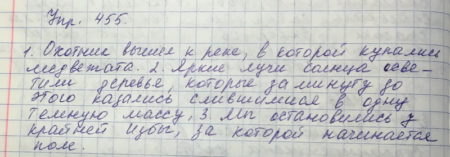 Упр. 455.
1. Охотник вышел к реке, в которой купались
медвежата. 2. Яркие лучи солнца осве-
тили деревья, которые за минуту до
этого казались слившимися в одну
темную массу. 3. Мы остановились у
крайней избы, за которой начинается
поле.